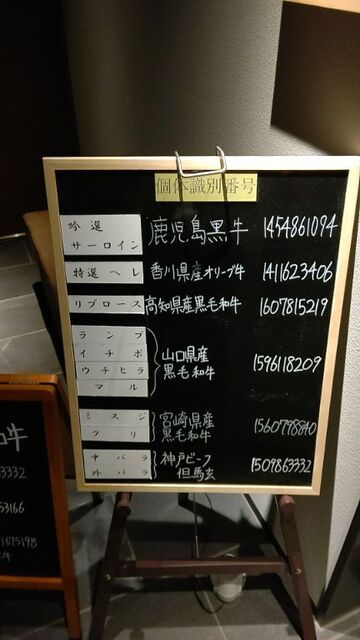 個体識別番号
吟選
サーロイン
鹿児島黒牛 1454861094
特選ヘレ 香川県産オリーブ牛 1411623406
リブロース 高知県産黒毛和牛 1607815219
ランプ
イチボ
ウチヒラ
マル
山口県産
黒毛和牛
1596118209
ミスジ
クリ
宮崎県産
黒毛和牛
1560798840
中バラ
外バラ
神戸ビーフ
但馬玄
1509863332
和牛
3332
53166
1675198